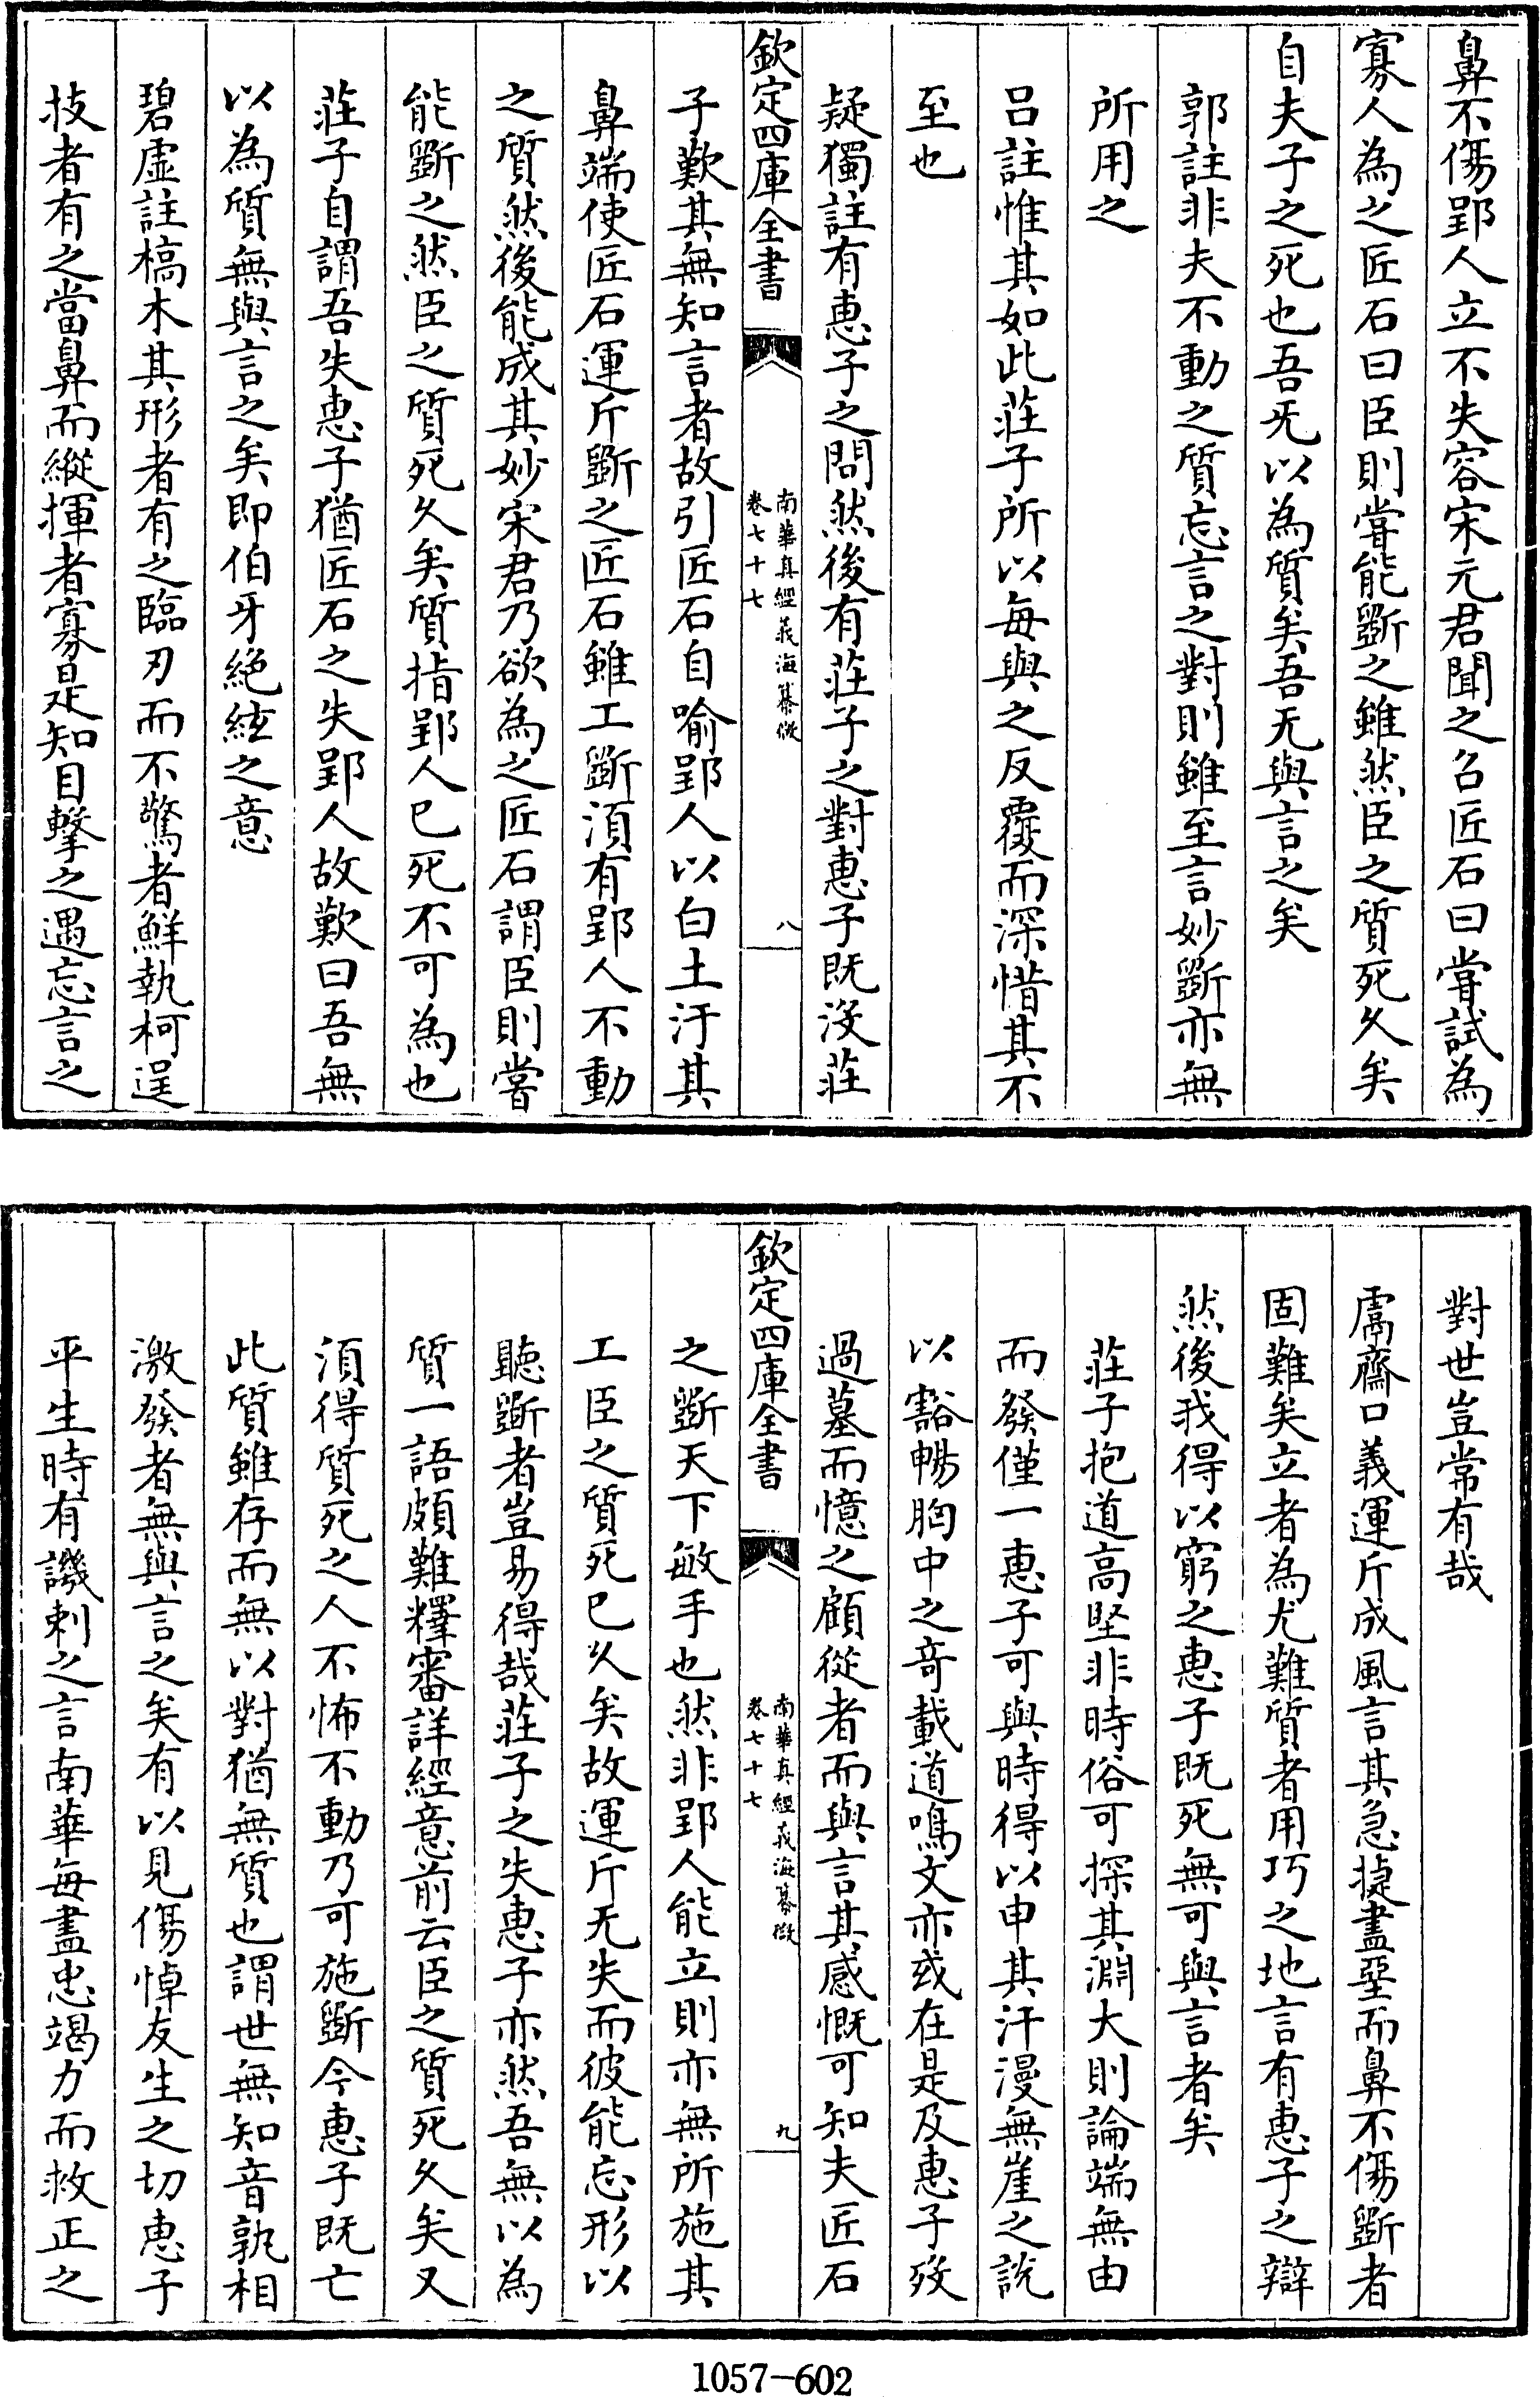 鼻不傷郢人立不失容宋元君聞之召匠石曰嘗試為
寡人為之匠石曰臣則嘗能斲之雖然臣之質死久矣
自夫子之死也吾旡以為質矣吾无與言之矣
郭註非夫不動之質忘言之對則雖至言妙斲亦無
所用之
吕註惟其如此莊子所以每與之反覆而深惜其不
至也
疑獨註有惠子之問然後有莊子之對惠子既沒莊
欽定四庫全書
南華真經義海纂微
卷七十七
八
子歎其無知言者故引匠石自喻郢人以白土汙其
鼻端使匠石運斤斲之匠石雖工斲須有郢人不動
之質然後能成其妙宋君乃欲為之匠石謂臣則嘗
能斲之然臣之質死久矣質指郢人已死不可為也
莊子自謂吾失惠子猶匠石之失郢人故歎曰吾無
以為質無與言之矣即伯牙絶絃之意
碧虛註槁木其形者有之臨刃而不驚者鮮執柯逞
技者有之當鼻而縱揮者寡是知目擊之遇忘言之
對世豈常有哉
鬳齋口義運斤成風言其急捷盡堊而鼻不傷斲者
固難矣立者為尤難質者用巧之地言有惠子之辯
然後我得以窮之惠子既死無可與言者矣
莊子抱道高堅非時俗可探其淵大則論端無由
而發僅一惠子可與時得以申其汗漫無崖之說
以豁暢胸中之竒載道鳴文亦或在是及惠子歿
過墓而憶之顧從者而與言其感慨可知夫匠石
欽定四庫全書
南華真經義海纂微
卷七十七
九
之斲天下敏手也然非郢人能立則亦無所施其
工臣之質死已久矣故運斤无失而彼能忘形以
聽斲者豈易得哉莊子之失惠子亦然吾無以為
質一語頗難釋審詳經意前云臣之質死久矣又
須得質死之人不怖不動乃可施斲今惠子既亡
此質雖存而無以對猶無質也謂世無知音孰相
激發者無與言之矣有以見傷悼友生之切惠子
平生時有譏刺之言南華每盡忠竭力而救正之
1057-602